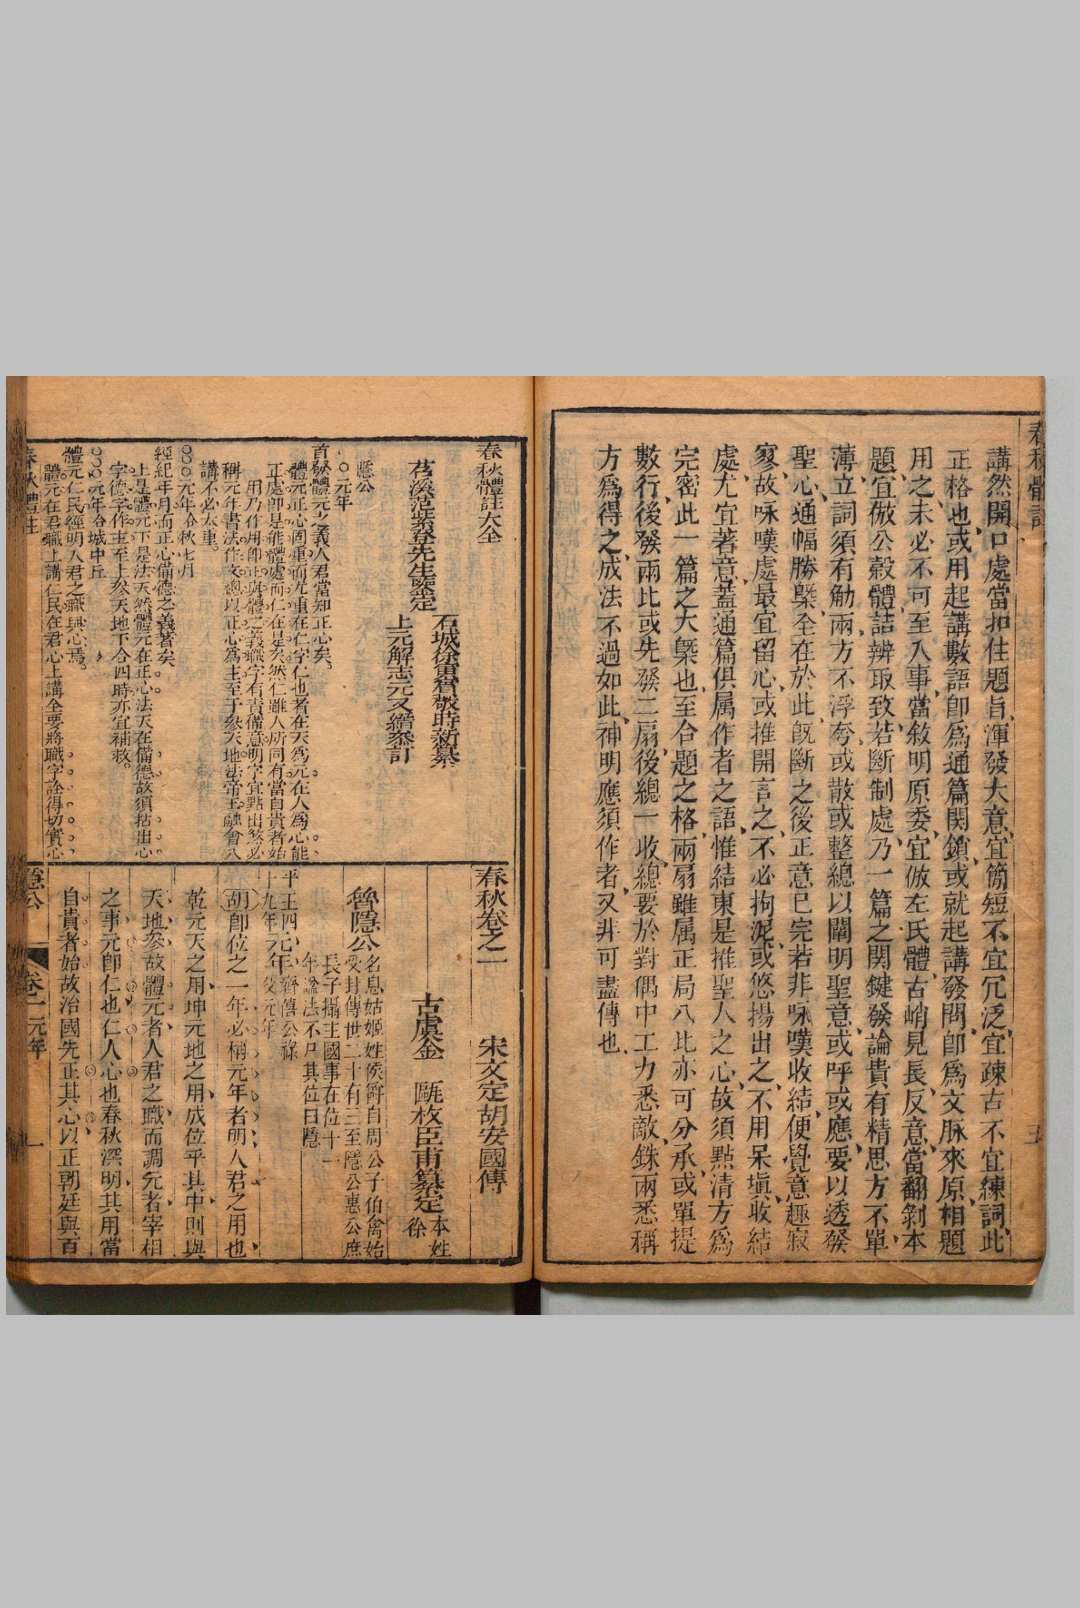 講然開口處當扣住題旨渾發大意宜簡短不宜冗泛宜疎古不宜練詞此
正格也或用起講數語即為通篇関鎖或就起講發問即為文脉來原相題
用之未必不可至入事當敘明原委宜倣左氏體古峭見長反意當翻剝本
題宜倣公穀體詰辨取致若斷制處乃一篇之関鍵發論貴有精思方不單
薄立詞須有觔兩方不浮夸或散或整總以闡明聖意或呼或應要以透發
聖心通幅勝槩全在於此既斷之後正意已完若非咏嘆收結便覺意趣寂
寥故咏嘆處最宜留心或推開言之不必拘泥或悠揚出之不用呆塡收結
處尤宜著意蓋通篇俱属作者之語惟結束是推聖人之心故須點清方為
完密此一篇之大槩也至合題之格兩扇雖属正局八比亦可分承或單提
數行後發兩比或先發二扇後總一收總要於對偶中工力悉敵銖兩悉稱
方為得之成法不過如此神明應須作者又非可盡傳也
春秋體註大全
苕溪范紫登先生鑒定
石城徐寅賓敬時新纂
上元解志元又縉叅訂
隱公
元年
首發體元之義人君當知正心矣
體元正心固重而尤重在仁字仁也者在天為元在人為心能
正處即是能體處而仁在是矣然仁雖人所同有當自貴者始
用乃作用即正與體之義職字有責備意明字宜點出煞必
稱元年書法作文總以正心為主至于叅天地法帝王融會八
講不必太重
元年合秋七月
經紀年月而正心備德之義著矣
上是體元下是法天然體元在正心法天在備德故須拈出心
字德字作主至上叅天地下合四時亦宜補救
元年合城中丘
體元仁民經明人君之職與心焉
體元在君職上講仁民在君心上講全要將職字詮得切實心
春秋卷之一
宋文定胡安國傳
古虞金甌枚臣甫纂定
本姓
徐
魯隱公
名息姑姬姓侯爵自周公子伯禽始
受封傳世二十有三至隱公惠公庶
長子攝主國事在位十一
年謚法不尸其位曰隱
平王四
十九年
元年
胡即位之一年必稱元年者明人君之用也
乾元天之用坤元地之用成位乎其中則與
天地叅故體元者人君之職而調元者宰相
之事元即仁也仁人心也春秋深明其用當
自貴者始故治國先正其心以正朝廷與百
春秋體註
隱公
卷一
元年
一